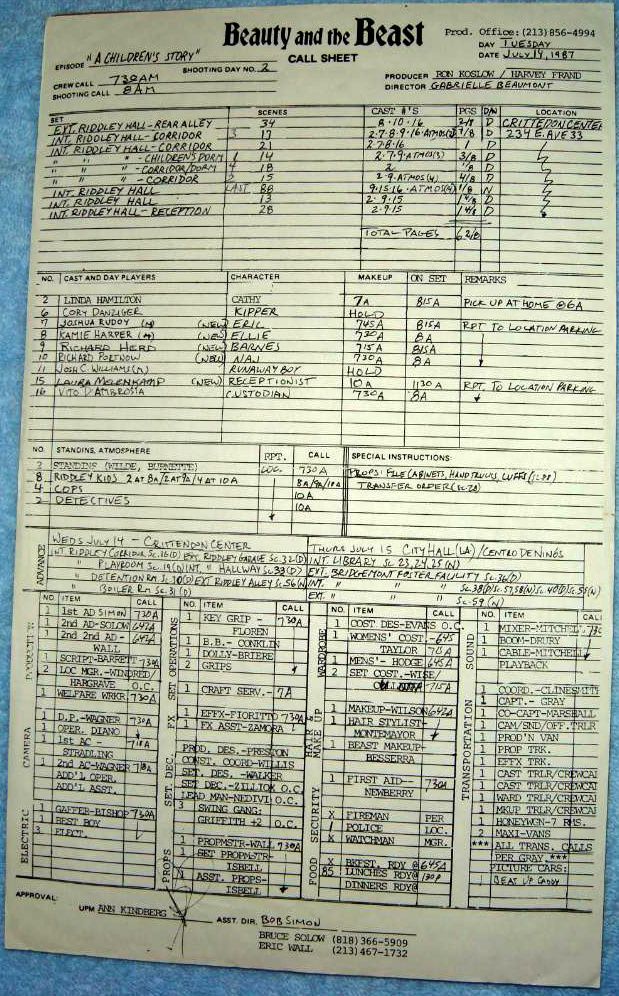 Beauty and the Beast
Prod. Office: (213) 856-4994
CALL SHEET
DAY TUESDAY
DATE JULY 14, 1987
EPISODE "A CHILDREN'S STORY"
SHOOTING DAY NO. 2
CREW CALL 730AM
SHOOTING CALL 8AM
PRODUCER RON KOSLOW / HARVEY FRAND
DIRECTOR GABRIELLE BEAUMONT
SET SCENES CAST #'S PGS D/N LOCATION
EXT. RIDDLEY HALL - REAR ALLEY 34 8-10-16 2/8 D CRITTEDON CENTER
INT. RIDDLEY HALL - CORRIDOR 3 17 D 234 E. AVE 33
INT. RIDDLEY HALL - CORRIDOR 21 2-7-8-16 1 D
" " " - CHILDREN'S DORM 1 14 2-7-9-ATMOS(3) 3/8 D
" " " - CORRIDOR/DORM 4 18 2 D
" " " - CORRIDOR 2 15 2-9-ATMOS(4) 4/8 D
INT. RIDDLEY HALL LAST 88 9-15-16-ATMOS(4) N
INT. RIDDLEY HALL 13 2-9-15 D
INT. RIDDLEY HALL - RECEPTION 28 2-9-15 D
TOTAL PAGES 6 2/8
NO. CAST AND DAY PLAYERS CHARACTER MAKEUP ON SET REMARKS
2 LINDA HAMILTON CATHY 7A 815A PICK UP AT HOME @ 6A
6 CORY DANZIGER KIPPER HOLD
7 JOSHUA RUDOY (M) (NEW) ERIC 745A 815A RPT TO LOCATION PARKING
8 KAMIE HARPER (M) (NEW) ELLIE 730A 8A
9 RICHARD HERD (NEW) BARNES 715A 815A
10 RICHARD PORTNOW (NEW) 730A 8A
11 JOSH C. WILLIAMS (M) RUNAWAY BOY HOLD
15 LAURA MELENKAMP (NEW) RECEPTIONIST 10A 1130A RPT. TO LOCATION PARKING
16 VITO D'AMBROSIA CUSTODIAN 730A 8A
NO. STANDINS, ATMOSPHERE RPT. CALL SPECIAL INSTRUCTIONS:
3 STANDINS (WILDE, BURNETTE) LOC. 730A PROPS: FILE CABINETS, HAND TRUCKS, CUFFS
8 RIDDLEY KIDS 2 AT 8A/2 AT 9A/4 AT 10A 8A/9A/10A TRANSFER ORDER
4 COPS 10A
2 DETECTIVES 10A
ADVANCE
WEDS JULY 14 - CRITTENDON CENTER
INT. RIDDLEY CORRIDOR SC. 16(D) EXT. RIDDLEY GARAGE SC. 32(D)
" PLAYROOM SC. 19(D) INT. " HALLWAY SC. 33(D)
" DETENTION RM SC. 30(D) EXT RIDDLEY ALLEY SC. 56(N)
" BOILER RM SC. 31(D)
THURS JULY 15 CITY HALL (LA) /
INT. LIBRARY SC 23,24,25 (N)
EXT. BRIDGEMONT FOSTER FACILITY SC. 36(D)
INT. " " SC. 38(D)
EXT. " " SC. 59(N)
NO. ITEM CALL
1 1st AD SIMON 730A
1 2nd AD-SOLOW 642A
1 2nd 2nd AD - 642A
WALL
1 SCRIPT-BARRETT 730A
2 LOC MGR.-WINDRED/
HARGRAVE O.C.
1 WELFARE WRKR. 730A
CAMERA
1 D.P.-WAGNER 730A
1 OPER. DIANO
1 1st AC - 718A
STRADLING
1 2nd AC-WAGNER 718A
ADD'L OPER.
ADD'L ASST.
ELECTRIC
1 GAFFER-BISHOP 730A
1 BEST BOY
3 ELECT.
SET OPERATIONS
NO. ITEM CALL
1 KEY GRIP - 730A
FLOREN
1 B.B.- CONKLIN
1 DOLLY-BRIERE
2 GRIPS
1 CRAFT SERV.- 7A
FX
1 EFFX-FIORITTO 730A
1 FX ASST-ZAMORA
SET DEC.
PROD. DES.-PRESTON
CONST. COORD-WILLIS
SET. DES. -WALKER
SET DEC.-ZILLIOX O.C.
LEAD MAN-NEDIVI O.C.
3 SWING GANG:
GRIFFITH +2 O.C.
PROPS
1 PROPMSTR-WALL 730A
1 SET PROPMSTR-
ISBELL
1 ASST. PROPS-
ISBELL
WARDROBE
NO. ITEM CALL
1 COST DES-EVANS O.C.
1 WOMENS' COST.- 645
TAYLOR 715A
1 MENS'- HOOGE 645A
2 SET COST.-WISE/
715A
MAKE UP
1 MAKEUP-WILSON 642A
1 HAIR STYLIST-
MONTEMAYOR
1 BEAST MAKEUP-
BESSERRA
1 FIRST AID-- 730A
NEWBERRY
SECURITY
X FIREMAN PER
1 POLICE LOC.
X WATCHMAN MGR.
FOOD
X BKFST. RDY @ 645A
85 LUNCHES RDY@ 130P
DINNERS RDY@
SOUND
NO. ITEM CALL
1 MIXER-MITCHELL 730
1 BOOM-DRURY
1 CABLE-MITCHELL
PLAYBACK
TRANSPORTATION
1 COORD.-CLINESMITH
1 CAPT.- GRAY
1 CO-CAPT-MARSHALL
1 CAM/SND/OFF.TRLR
1 PROD'N VAN
1 PROP TRK.
1 EFFX TRK.
1 CAST TRLR/CREWCAB
1 CAST TRLR/CREWCAB
1 WARD TRLR/CREWCAB
1 MKUP TRLR/CREWCAB
1 HONEYWGN-7 RMS.
2 MAXI-VANS
*** ALL TRANS. CALLS
PER GRAY.***
PICTURE CARS:
BEAT UP CADDY
APPROVAL:
UPM ANN KINDBERG
ASST. DIR. BOB SIMON
BRUCE SOLOW (818)366-5909
ERIC WALL (213)467-1732